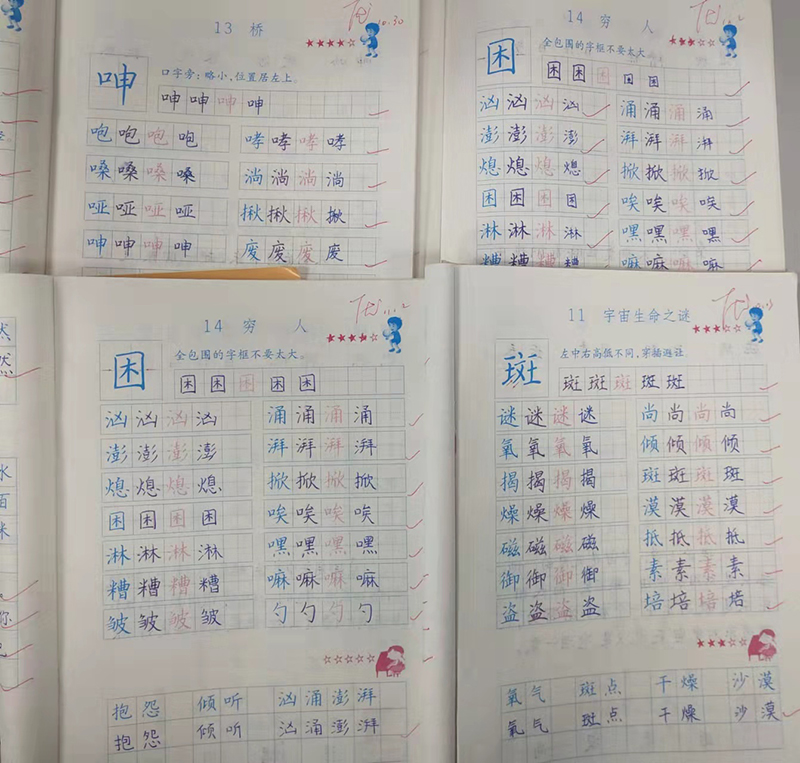 13 桥
口字旁：略小，位置居左上。
呻 呻 呻 呻 呻
咆 咆 咆 咆 哮 哮 哮 哮
嗓 嗓 嗓 嗓 淌 淌 淌 淌
哑 哑 哑 哑 揪 揪 揪 揪
呻 呻 呻 呻 废 废 废 废
14 穷人
全包围的字框不要太大
困 困 困 困 困 困
汹 汹 汹 汹 涌 涌 涌 涌
澎 澎 澎 澎 湃 湃 湃 湃
熄 熄 熄 熄 掀 掀 掀 掀
困 困 困 困 唉 唉 唉 唉
淋 淋 淋 淋 嘿 嘿 嘿 嘿
糟 糟 糟 糟 嘛 嘛 嘛 嘛
14 穷人
全包围的字框不要太大。
困 困 困 困 困 困
汹 汹 汹 汹 涌 涌 涌 涌
澎 澎 澎 澎 湃 湃 湃 湃
熄 熄 熄 熄 掀 掀 掀 掀
困 困 困 困 唉 唉 唉 唉
淋 淋 淋 淋 嘿 嘿 嘿 嘿
糟 糟 糟 糟 嘛 嘛 嘛 嘛
皱 皱 皱 皱 勺 勺 勺 勺
抱怨 倾听 汹涌澎湃
抱怨 倾听 汹涌澎湃
11 宇宙生命之谜
左中右高低不同，穿插避让。
斑 斑 斑 斑 斑 斑
谜 谜 谜 谜 尚 尚 尚 尚
氧 氧 氧 氧 倾 倾 倾 倾
揭 揭 揭 揭 斑 斑 斑 斑
燥 燥 燥 燥 漠 漠 漠 漠
磁 磁 磁 磁 抵 抵 抵 抵
御 御 御 御 素 素 素 素
盗 盗 盗 盗 培 培 培 培
氧气 斑点 干燥 沙漠
氧气 斑点 干燥 沙漠